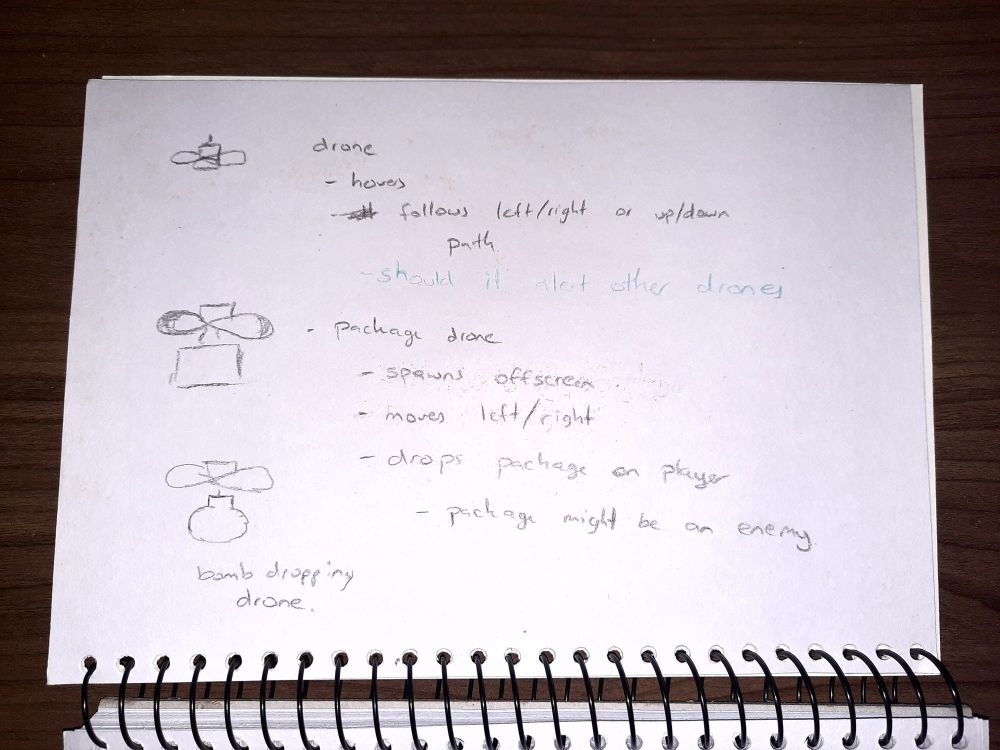 drone
- hovers
- follows left/right or up/down
path
- should it alert other drones
- package drone
- spawns offscreen
- moves left/right
- drops package on player
- package might be an enemy.
bomb dropping
drone.